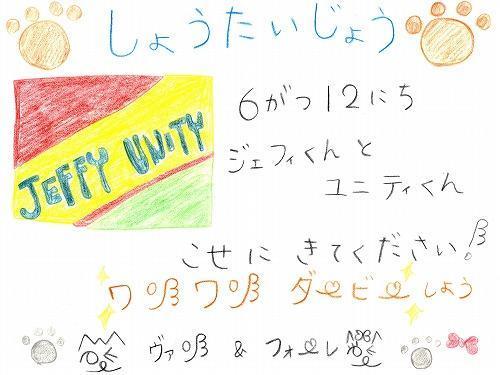 しょうたいじょう
JEFFY UNITY
6がつ12にち
ジェフィくんと
ユニティくん
こせに きてください!
ワンワン ダービーしよう
ヴァン & フォーレ